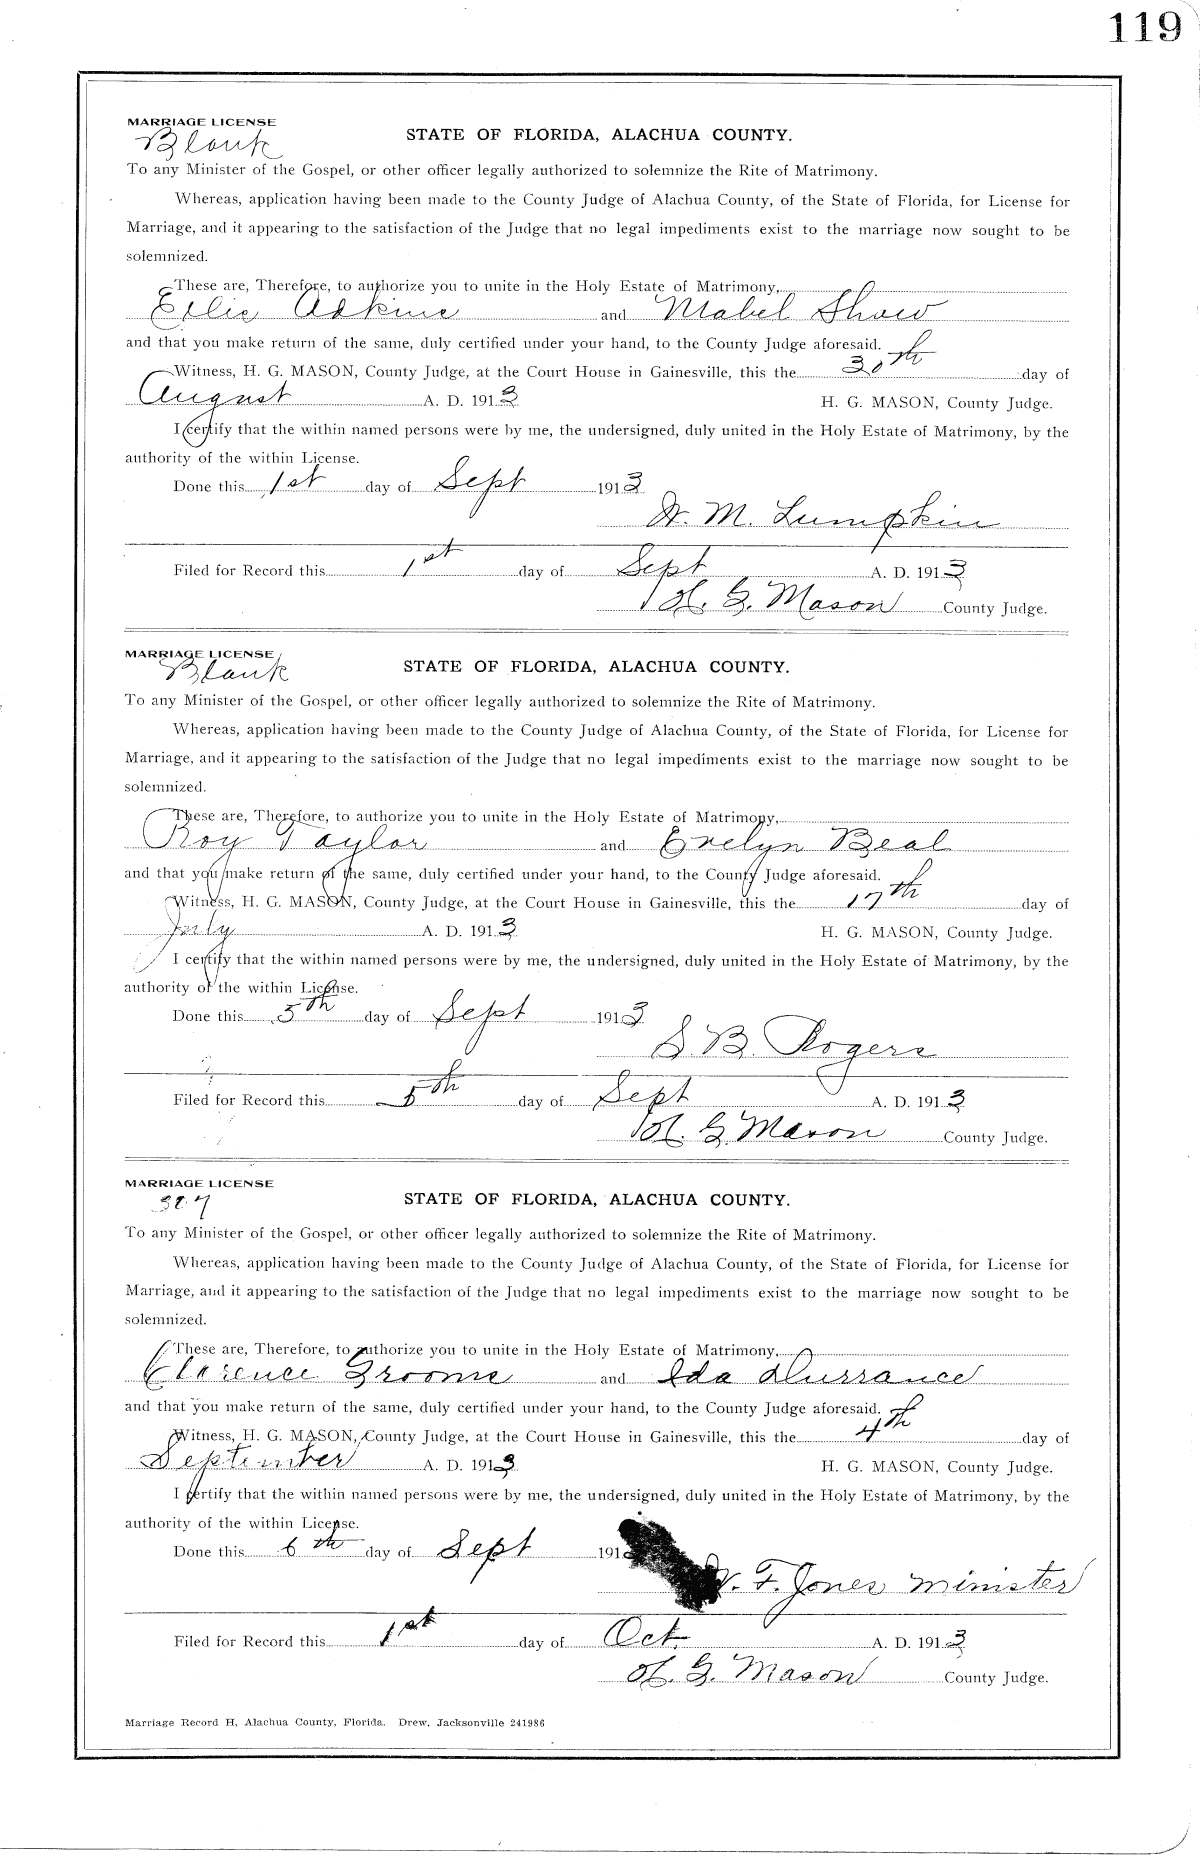 119
MARRIAGE LICENSE
Blank
STATE OF FLORIDA, ALACHUA COUNTY.
To any Minister of the Gospel, or other officer legally authorized to solemnize the Rite of Matrimony.
Whereas, application having been made to the County Judge of Alachua County, of the State of Florida, for License for
Marriage, and it appearing to the satisfaction of the Judge that no legal impediments exist to the marriage now sought to be
solemnized.
These are, Therefore, to authorize you to unite in the Holy Estate of Matrimony,
Ellie Adkins and Mabel Shaw
and that you make return of the same, duly certified under your hand, to the County Judge aforesaid.
Witness, H. G. MASON, County Judge, at the Court House in Gainesville, this the 30th day of
August A. D. 1913 H. G. MASON, County Judge.
I certify that the within named persons were by me, the undersigned, duly united in the Holy Estate of Matrimony, by the
authority of the within License.
Done this 1st day of Sept 1913
W. M. Lumpkin
Filed for Record this 1st day of Sept A. D. 1913
H. G. Mason County Judge.
MARRIAGE LICENSE
Blank
STATE OF FLORIDA, ALACHUA COUNTY.
To any Minister of the Gospel, or other officer legally authorized to solemnize the Rite of Matrimony.
Whereas, application having been made to the County Judge of Alachua County, of the State of Florida, for License for
Marriage, and it appearing to the satisfaction of the Judge that no legal impediments exist to the marriage now sought to be
solemnized.
These are, Therefore, to authorize you to unite in the Holy Estate of Matrimony,
Roy Taylor and Evelyn Beal
and that you make return of the same, duly certified under your hand, to the County Judge aforesaid.
Witness, H. G. MASON, County Judge, at the Court House in Gainesville, this the 17th day of
July A. D. 1913 H. G. MASON, County Judge.
I certify that the within named persons were by me, the undersigned, duly united in the Holy Estate of Matrimony, by the
authority of the within License.
Done this 5th day of Sept 1913
S. B. Rogers
Filed for Record this 5th day of Sept A. D. 1913
H. G. Mason County Judge.
MARRIAGE LICENSE
327
STATE OF FLORIDA, ALACHUA COUNTY.
To any Minister of the Gospel, or other officer legally authorized to solemnize the Rite of Matrimony.
Whereas, application having been made to the County Judge of Alachua County, of the State of Florida, for License for
Marriage, and it appearing to the satisfaction of the Judge that no legal impediments exist to the marriage now sought to be
solemnized.
These are, Therefore, to authorize you to unite in the Holy Estate of Matrimony,
Clarence Grooms and Ida Durrance
and that you make return of the same, duly certified under your hand, to the County Judge aforesaid.
Witness, H. G. MASON, County Judge, at the Court House in Gainesville, this the 4th day of
September A. D. 1913 H. G. MASON, County Judge.
I certify that the within named persons were by me, the undersigned, duly united in the Holy Estate of Matrimony, by the
authority of the within License.
Done this 6th day of Sept 191
F. Jones minister
Filed for Record this 1st day of Oct. A. D. 1913
H. G. Mason County Judge.
Marriage Record H, Alachua County, Florida. Drew, Jacksonville 241986